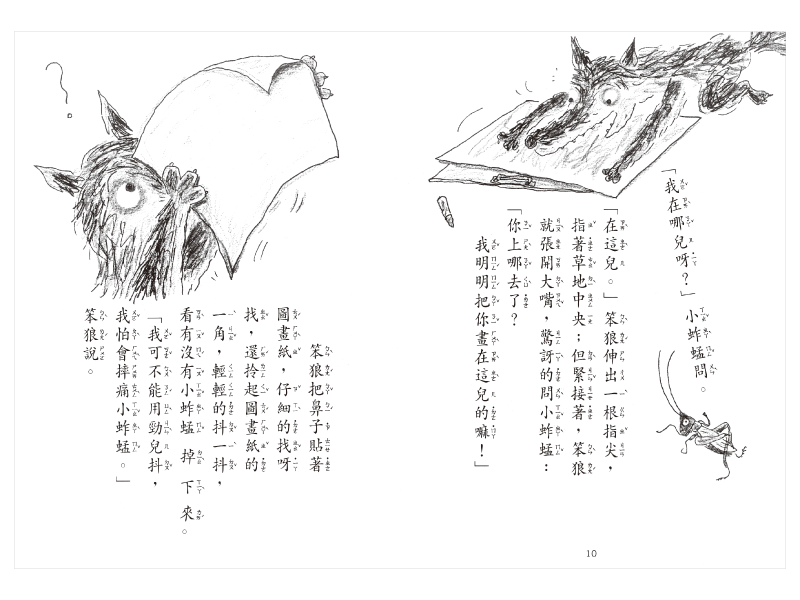 「我在哪兒呀？」小蚱蜢問。
「在這兒。」笨狼伸出一根指尖，
指著草地中央；但緊接著，笨狼
就張開大嘴，驚訝的問小蚱蜢：
「你上哪去了？
我明明把你畫在這兒的嘛！」
笨狼把鼻子貼著
圖畫紙，仔細的找呀
找，還拎起圖畫紙的
一角，輕輕的抖一抖，
看有沒有小蚱蜢 掉 下 來。
「我可不能用勁兒抖，
我怕會摔痛小蚱蜢。」
笨狼說。
10